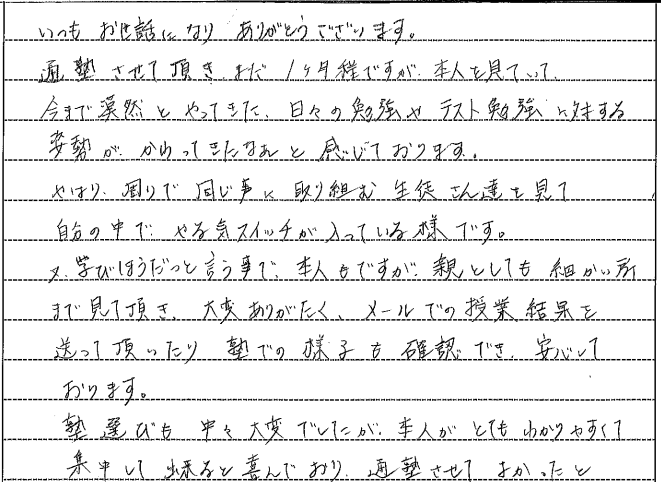 いつも お世話に なり ありがとう ございます。
通塾 させて 頂き まだ 1ヶ月程ですが、本人を見ていて、
今まで漠然と やってきた、日々の勉強や テスト勉強に対する
姿勢が かわってきたなあ と 感じて おります。
やはり、周りで 同じ事に 取り組む 生徒さん達を見て
自分の中で やる気スイッチが 入っている様です。
又、学びほうだいっと 言う事で、本人もですが、親としても 細かい所
まで見て頂き、大変ありがたく、メールでの授業結果を
送って頂いたり 塾での様子も 確認でき、安心して
おります。
塾選びも 中々大変でしたが、本人が とても わかりやすくて
集中して 出来ると喜んでおり、通塾させて よかったと